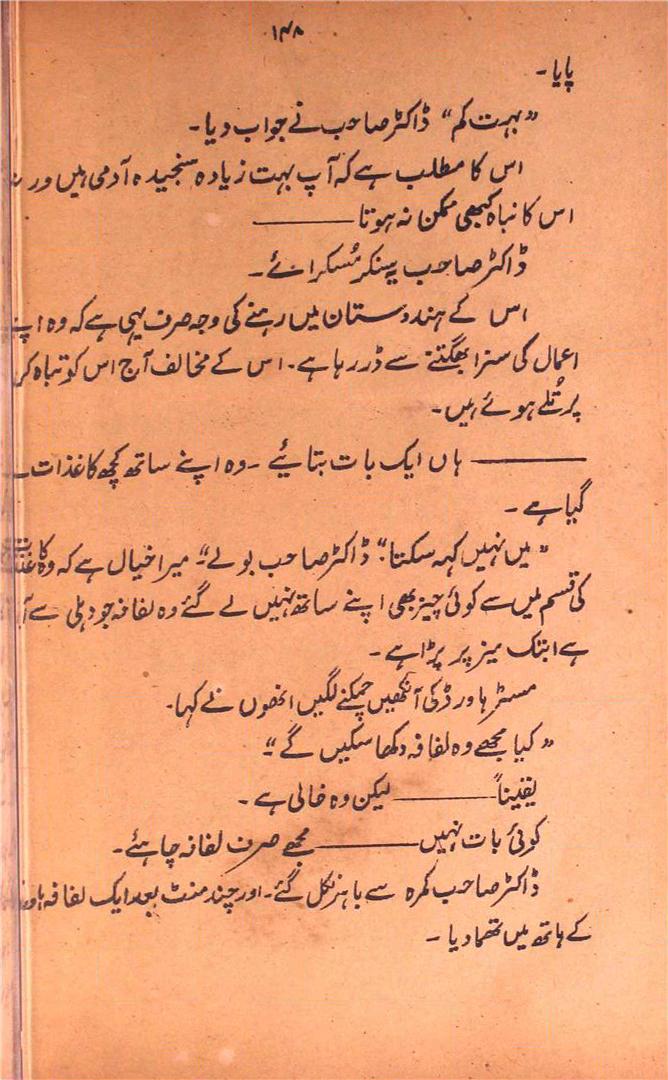 ۱۴۸
پایا۔
”بہت کم“ ڈاکٹر صاحب نے جواب دیا۔
اس کا مطلب ہے کہ آپ بہت زیادہ سنجیدہ آدمی ہیں ورنہ
اس کا نباہ کبھی ممکن نہ ہوتا ———
ڈاکٹر صاحب یہ سنکر مُسکرائے۔
اس کے ہندوستان میں رہنے کی وجہ صرف یہی ہے کہ وہ اپنے
اعمال کی سزا بھگتنے سے ڈر رہا ہے۔ اس کے مخالف آج اس کو تباہ کرنے
پر تُلے ہوئے ہیں۔
——— ہاں ایک بات بتائیے ۔ وہ اپنے ساتھ کچھ کاغذات لے
گیا ہے ۔
”میں نہیں کہہ سکتا“۔ ڈاکٹر صاحب بولے”۔ میرا خیال ہے کہ وہ کاغذات
کی قسم میں سے کوئی چیز بھی اپنے ساتھ نہیں لے گئے وہ لفافہ جو دہلی سے آیا
ہے ابتک میز پر پڑا ہے۔
مسٹر ہاورڈ کی آنکھیں چمکنے لگیں انھوں نے کہا۔
”کیا مجھے وہ لفافہ دکھا سکیں گے“۔
یقیناً ——— لیکن وہ خالی ہے ۔
کوئی بات نہیں ——— مجھے صرف لفافہ چاہئے۔
ڈاکٹر صاحب کمرہ سے باہر نکل گئے۔ اور چند منٹ بعد ایک لفافہ ہاورڈ
کے ہاتھ میں تھما دیا ۔